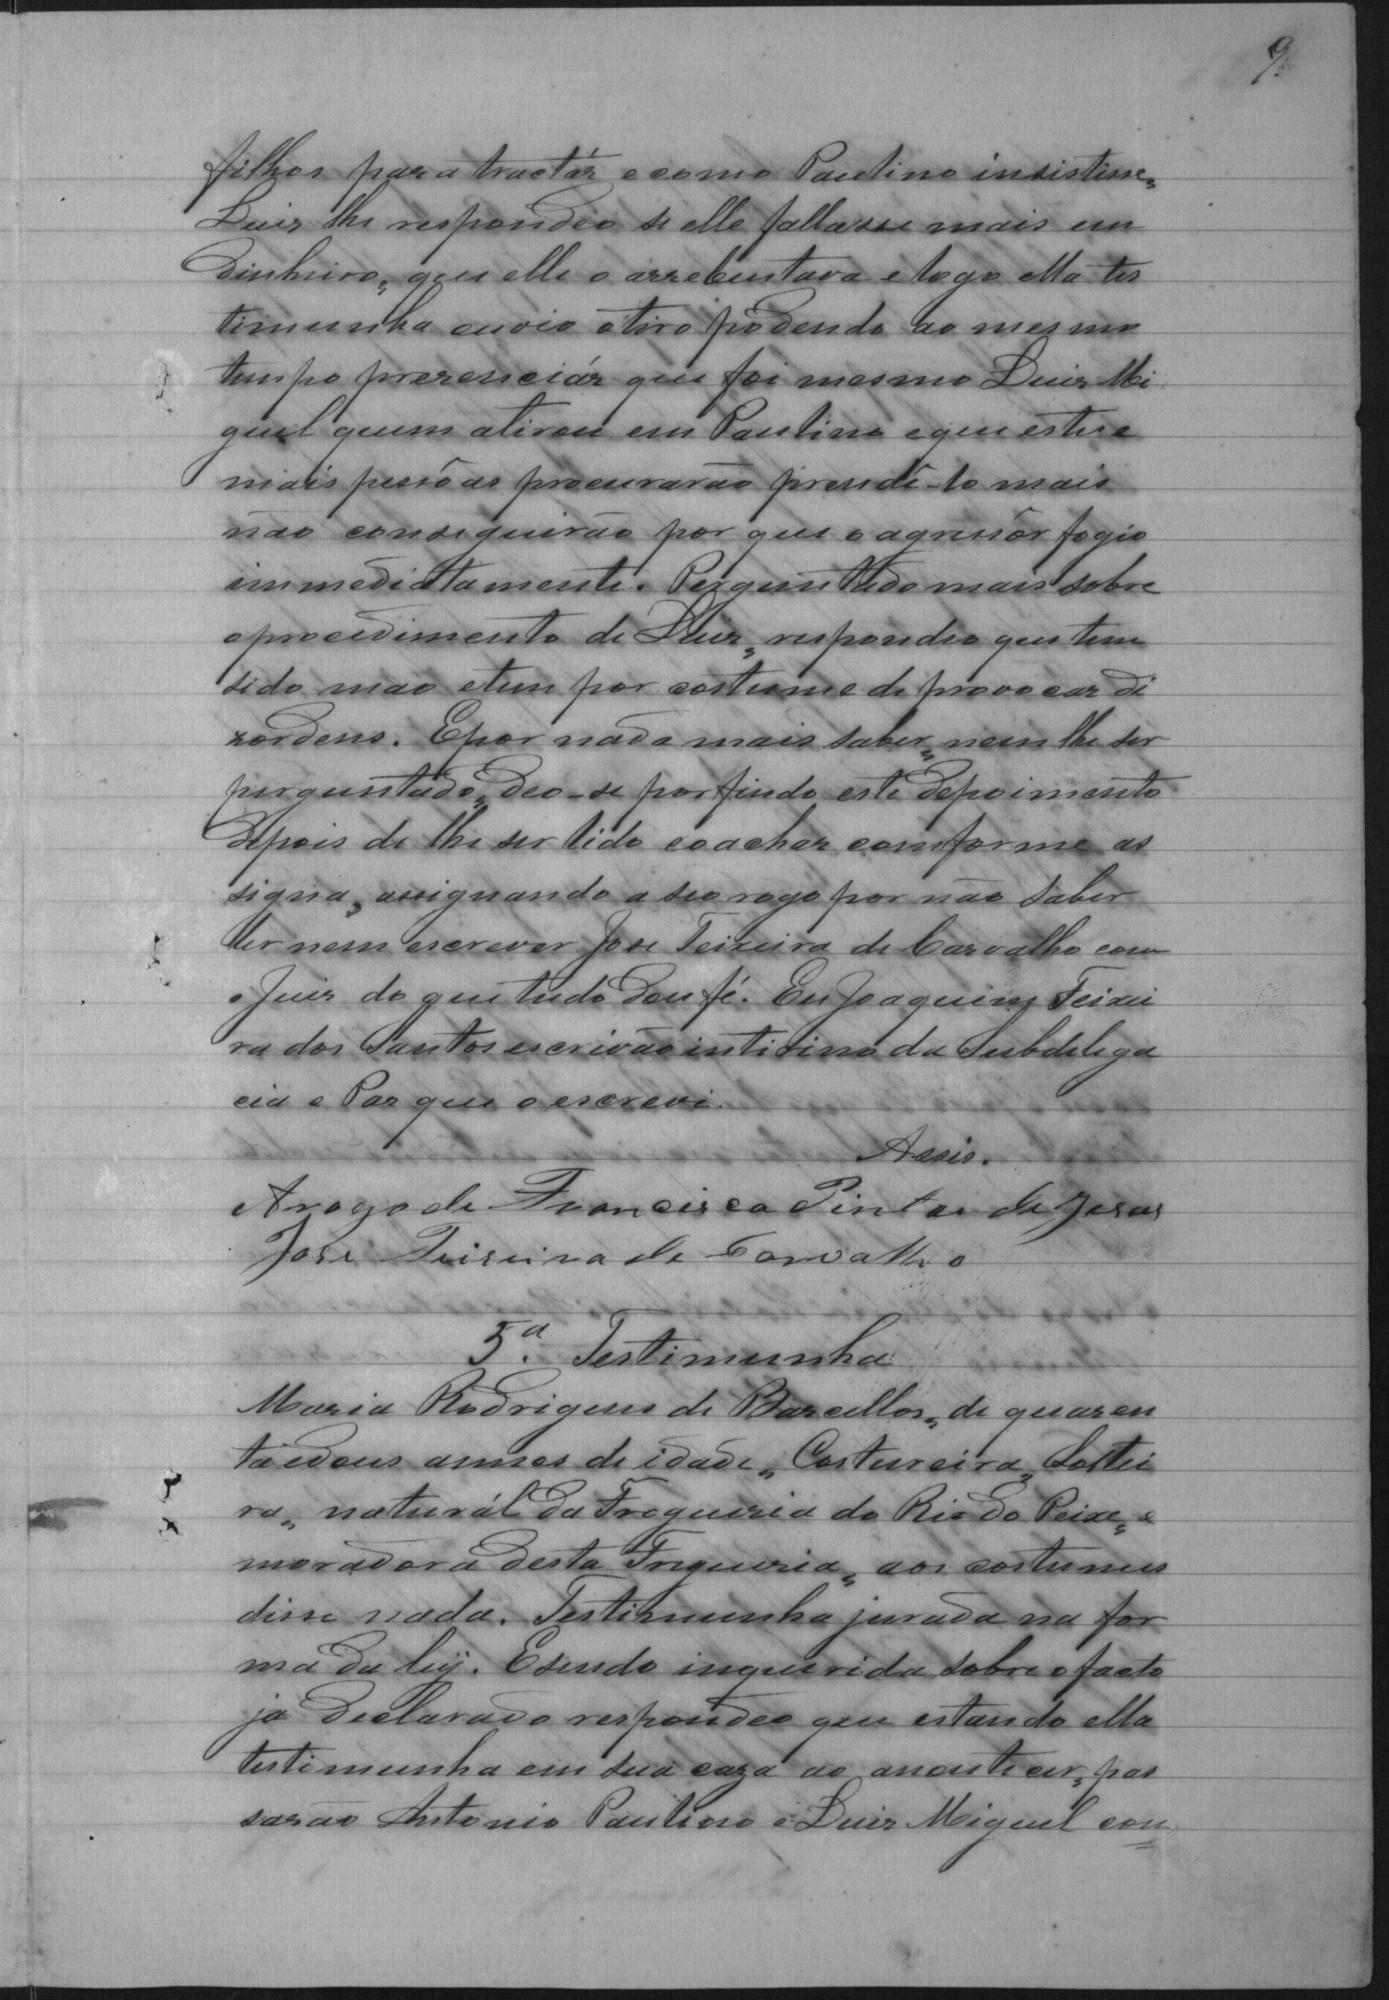 9.
filhos para tractár e como Paulino insistisse„
Luiz lhe respondeo se elle fallasse mais em
dinheiro„ que elle o arrebentava e logo ella tes
timunha ouvio o tiro podendo ao mesmo
tempo prezenciár que foi mesmo Luiz Mi
guel quem atirou em Paulino e que este e
mais pessôas procurarão prendê-lo mais
não conseguirão por que o agressôr fogio
immediatamente. Perguntado mais sobre
o procedimento de Luiz„ respondeo que tem
sido mao e tem por costume de provocar di
zordens. E por nada mais saber„ nem lhe ser
perguntado„ deo-se por findo este depoimento
depois de lhe ser lido e o achar comforme as
signa„ assignando a seo rogo por não saber
ler nem escrever Jose Teixeira de Carvalho com
o Juiz do que tudo dou fé. Eu Joaquim Teixei
ra dos Santos escrivão intirino da Subdelega
cia e Paz que o escrevi.
Assis.
A rogo de Francisca Pinta de Jesus
José Teixeira de Carvalho
5ª. Testimunha
Maria Rodrigues de Barcellos„ de quaren
ta e dous annos de idade„ Costureira„ Soltei
ra„ naturál da Freguezia do Rio do Peixe„ e
moradora desta Freguezia„ aos costumes
disse nada. Testimunha jurada na for
ma da leÿ. E sendo inquerida sobre o facto
já declarado respondeo que estando ella
testimunha em sua caza ao anoutecer„ pas
sarão Antonio Paulino e Luiz Miguel con